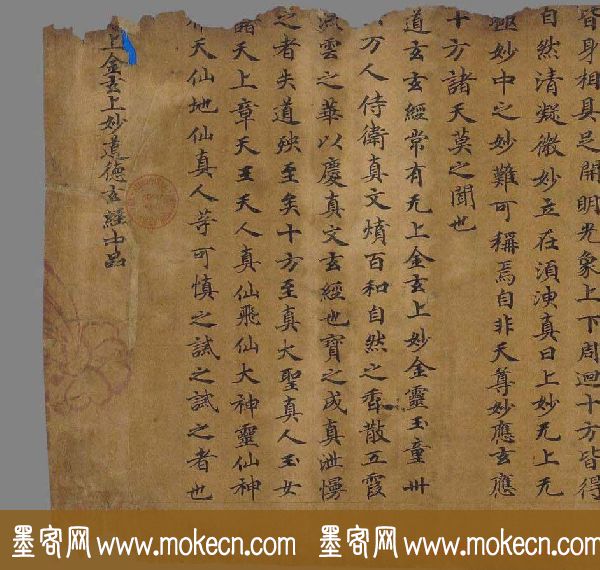 皆身相具足開明光象上下周迴十方皆得
自然清凝微妙立在須臾真曰上妙无上无
極妙中之妙難可稱焉自非天尊妙應玄應
十方諸天莫之聞也
道玄玄經常有无上金玄上妙金靈玉童卅
万人侍衛真文燌百和自然之香散五霞
雲之華以慶真文玄經也寶之成真泄慢
之者失道殃至矣十方至真大聖真人玉女
諸天上章天王天人真仙飛仙大神靈仙神
天仙地仙真人等可慎之誡之誡之者也
上金玄上妙道德玄經中品
墨客网 www.mokecn.com 墨客网 www.mokecn.com